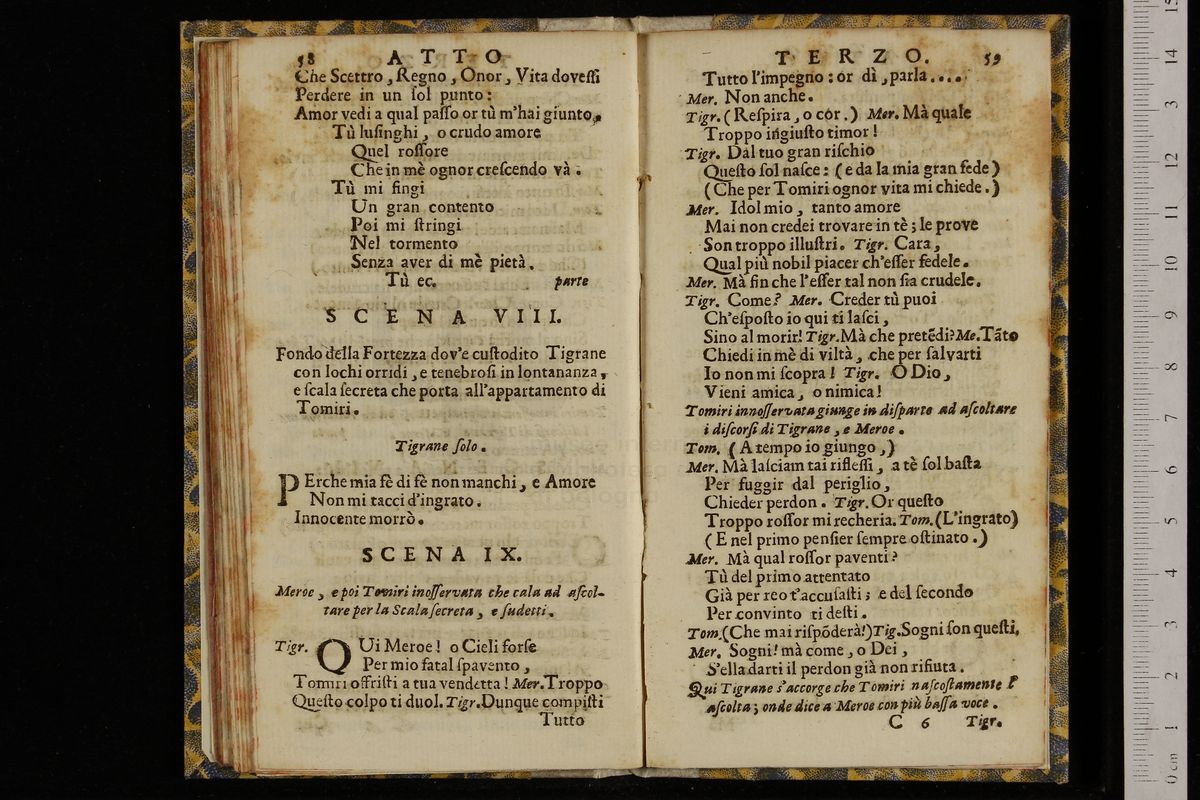 58 ATTO
Che Scettro, Regno, Onor, Vita doveſſi
Perdere in un ſol punto:
Amor vedi a qual paſſo or tù m'hai giunto,
Tù luſinghi, o crudo amore
Quel roſſore
Che in mè ognor creſcendo và.
Tù mi fingi
Un gran contento
Poi mi ſtringi
Nel tormento
Senza aver di mè pietà.
Tù ec. parte
SCENA VIII.
Fondo della Fortezza dov'e cuſtodito Tigrane
con lochi orridi, e tenebroſi in lontananza,
e ſcala ſecreta che porta all'appartamento di
Tomiri.
Tigrane ſolo.
PErche mia fè di fè non manchi, e Amore
Non mi tacci d'ingrato.
Innocente morrò.
SCENA IX.
Meroe, e poi Tomiri inoſſervata che cala ad aſcol-
tare per la Scala ſecreta, e ſudetti.
Tigr. QUi Meroe! o Cieli forſe
Per mio fatal ſpavento,
Tomiri offriſti a tua vendetta! Mer. Troppo
Queſto colpo ti duol. Tigr. Dunque compiſti
Tutto
TERZO. 59
Tutto l'impegno: or dì, parla....
Mer. Non anche.
Tigr. (Reſpira, o cór.) Mer. Mà quale
Troppo ingiuſto timor!
Tigr. Dal tuo gran riſchio
Queſto ſol naſce: (e da la mia gran fede)
(Che per Tomiri ognor vita mi chiede.)
Mer. Idol mio, tanto amore
Mai non credei trovare in tè; le prove
Son troppo illuſtri. Tigr. Cara,
Qual più nobil piacer ch'eſſer fedele.
Mer. Mà fin che l'eſſer tal non ſia crudele.
Tigr. Come? Mer. Creder tù puoi
Ch'eſpoſto io qui ti laſci,
Sino al morir! Tigr. Mà che pretẽdi? Me. Tãto
Chiedi in mè di viltà, che per ſalvarti
Io non mi ſcopra! Tigr. O Dio,
Vieni amica, o nimica!
Tomiri innoſſervata giunge in diſparte ad aſcoltare
i diſcorſi di Tigrane, e Meroe.
Tom. (A tempo io giungo,)
Mer. Mà laſciam tai rifleſſi, a tè ſol baſta
Per fuggir dal periglio,
Chieder perdon. Tigr. Or queſto
Troppo roſſor mi recheria. Tom. (L'ingrato)
(E nel primo penſier ſempre oſtinato.)
Mer. Mà qual roſſor paventi?
Tù del primo attentato
Già per reo t'accuſaſti; e del ſecondo
Per convinto ti deſti.
Tom. (Che mai riſpõderà!) Tig. Sogni ſon queſti.
Mer. Sogni! mà come, o Dei,
S'ella darti il perdon già non rifiuta.
Qui Tigrane s'accorge che Tomiri naſcoſtamente l'
aſcolta; onde dice a Meroe con più baſſa voce.
C 6 Tigr.